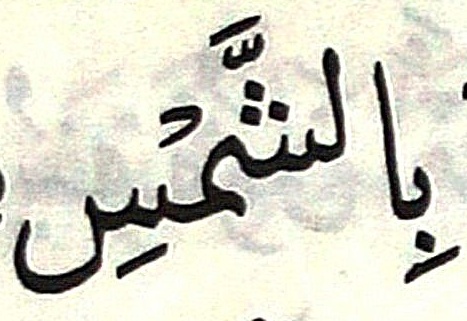 بِالشَّمْسِ